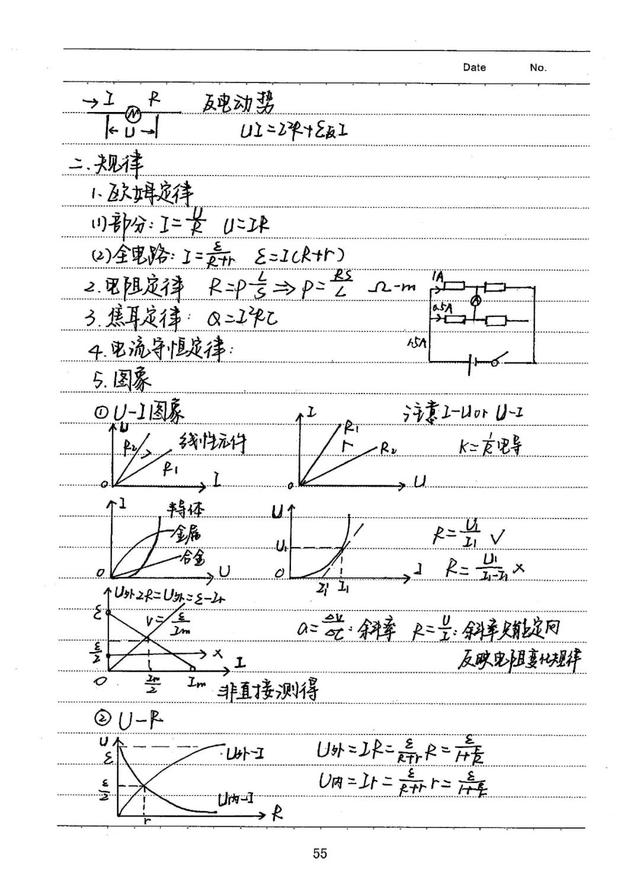 Date No.
→ I R 反电动势
← U → UI=I²R+ε反I
二.规律
1.欧姆定律
(1)部分: I=U/R U=IR
(2)全电路: I=ε/(R+r) ε=I(R+r)
2.电阻定律 R=ρL/S ⇒ ρ=RS/L Ω-m
1A
0.5A
1.5A
3.焦耳定律: Q=I²Rt
4.电流守恒定律:
5.图象
① U-I图象 注意I-U or U-I
U R₂ R₁ 线性元件 O I
I R₁ r R₂ O U K=1/R电导
I 半导体 金属 合金 O U
U U₁ O I₁' I₁ I
R=U₁/I₁ √
R=U₁/(I₁-I₁') ×
ε ε/2 O Im/2 Im I ×
a=ΔV/Δt:斜率 R=U/I:斜率只能定向
反映电阻变化规律
非直接测得
② U-R
U ε ε/2 r R U外-I U内-I
U外=IR=ε/(R+r) R=ε/(1+r/R)
U内=Ir=ε/(R+r) r=ε/(1+R/r)
55